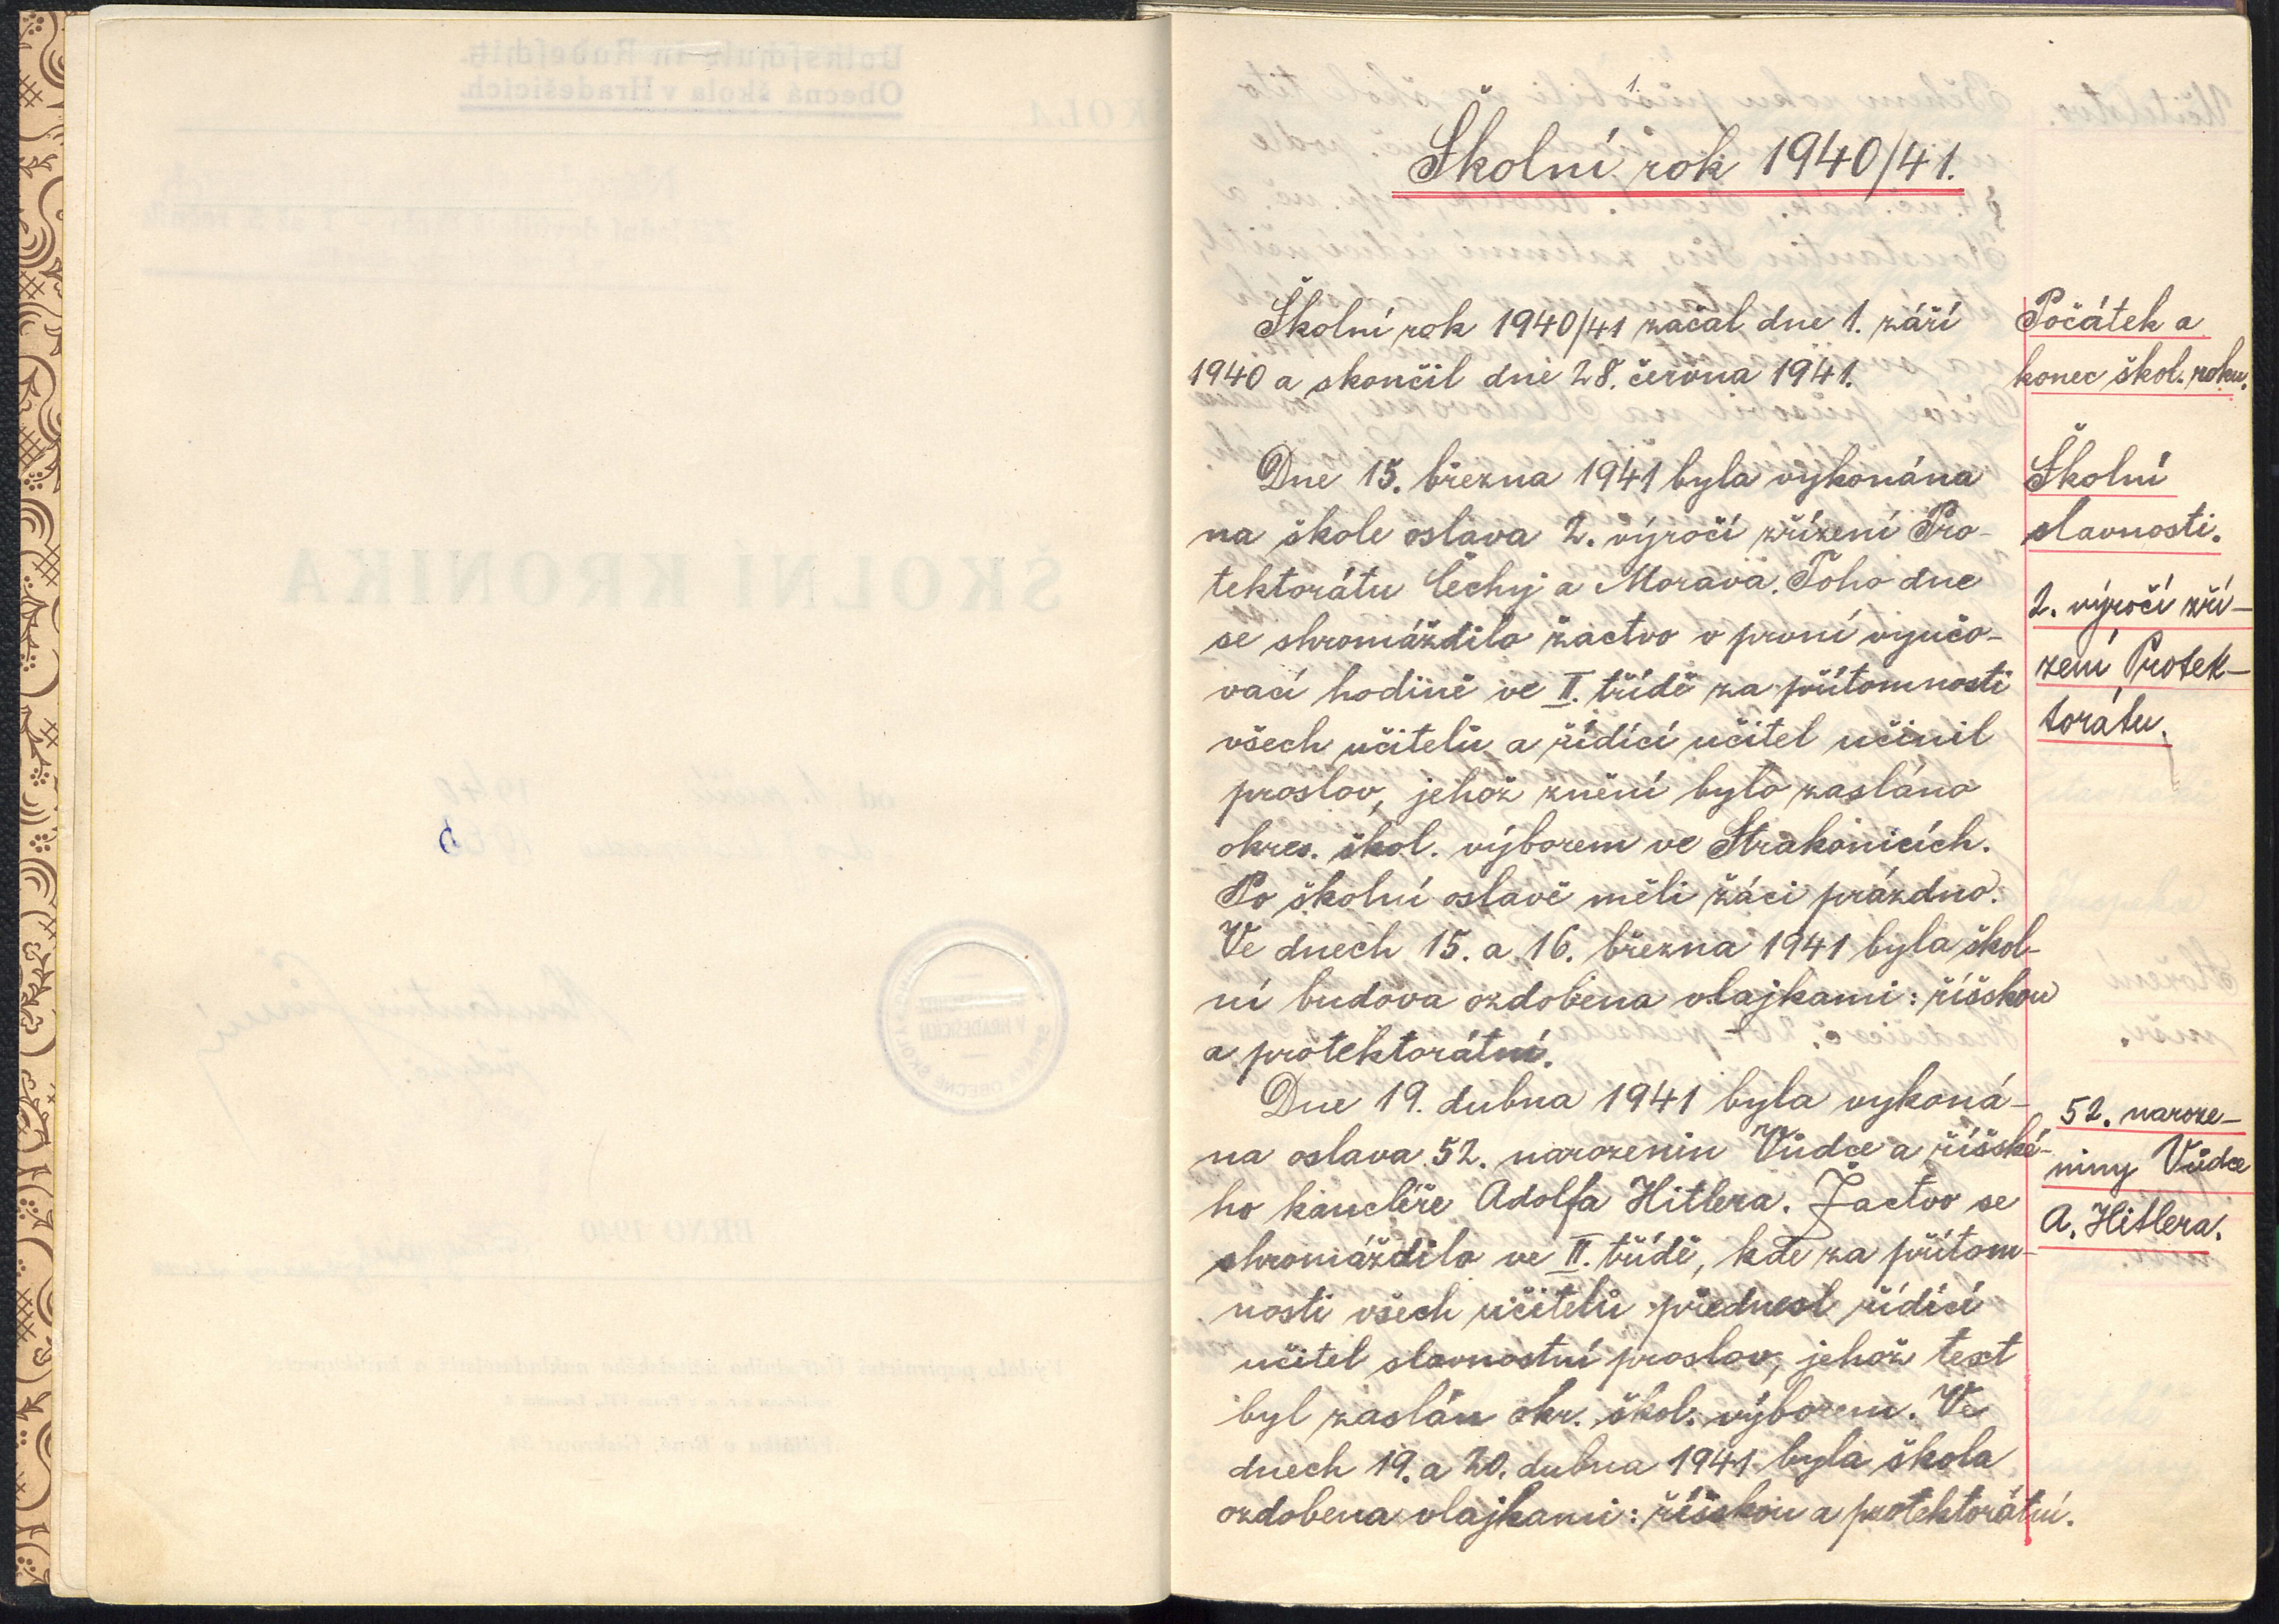 1
Školní rok 1940/41.
Školní rok 1940/41 začal dne 1. září
1940 a skončil dne 28. června 1941.
Počátek a
konec škol. roku.
Dne 15. března 1941 byla vykonána
na škole oslava 2. výročí zřízení Pro-
tektorátu Čechy a Morava. Toho dne
se shromáždilo žactvo v první vyučo-
vací hodině ve II. třídě za přítomnosti
všech učitelů a řídící učitel učinil
proslov, jehož znění bylo zasláno
okres. škol. výborem ve Strakonicích.
Po školní oslavě měli žáci prázdno.
Ve dnech 15. a 16. března 1941 byla škol-
ní budova ozdobena vlajkami: říšskou
a protektorátní.
Školní
slavnosti.
2. výročí zří-
zení Protek-
torátu.
Dne 19. dubna 1941 byla vykoná-
na oslava 52. narozenin Vůdce a říšské-
ho kancléře Adolfa Hitlera. Žactvo se
shromáždilo ve II. třídě, kde za přítom-
nosti všech učitelů přednesl řídící
učitel slavnostní proslov, jehož text
byl zaslán okr. škol. výborem. Ve
dnech 19. a 20. dubna 1941 byla škola
ozdobena vlajkami: říšskou a protektorátní.
52. naroze-
niny Vůdce
A. Hitlera.